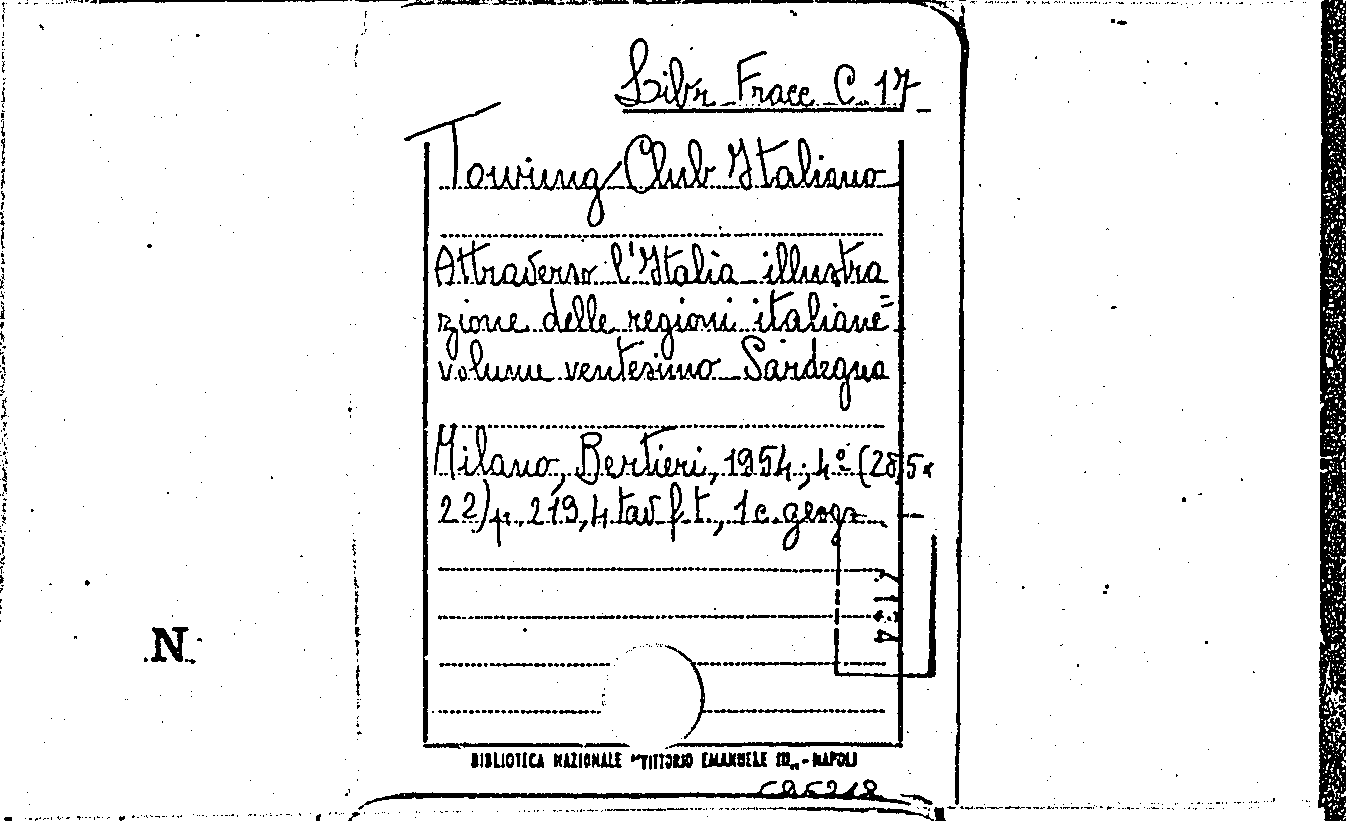 Libr. Fracc. C. 17
Touring Club Italiano
Attraverso l'Italia illustra
zione delle regioni italiane=
volume ventesimo Sardegna
Milano, Bertieri, 1954; 4º (28,5x
22) p. 219, 4 tav f.t., 1 c. geogr.
N
BIBLIOTECA NAZIONALE "VITTORIO EMANUELE III" - NAPOLI